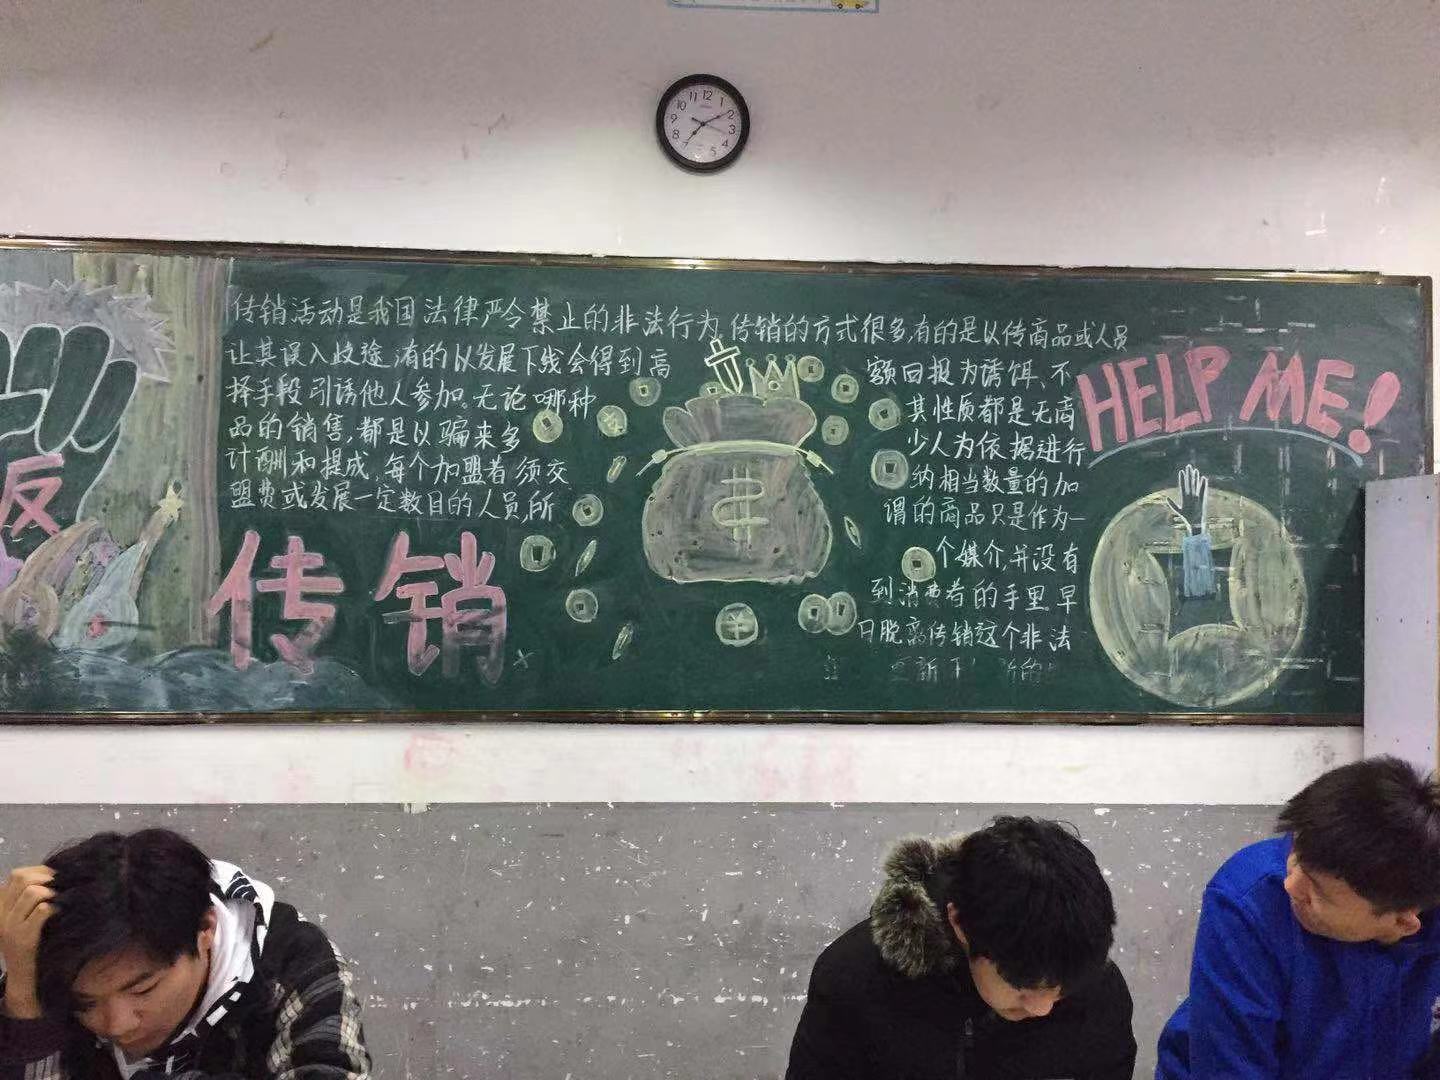 12
1
2
3
4
5
7
8
9
10
11
传销活动是我国法律严令禁止的非法行为,传销的方式很多,有的是以传商品或人员
让其误入歧途,有的以发展下线会得到高
额回报为诱饵、不
择手段引诱他人参加。无论哪种
其性质都是无商
品的销售,都是以骗来多
少人为依据进行
计酬和提成,每个加盟者须交
纳相当数量的加
盟费或发展一定数目的人员,所
谓的商品只是作为一
个媒介,并没有
到消费者的手里.早
日脱离传销这个非法
HELP ME!
反
传销